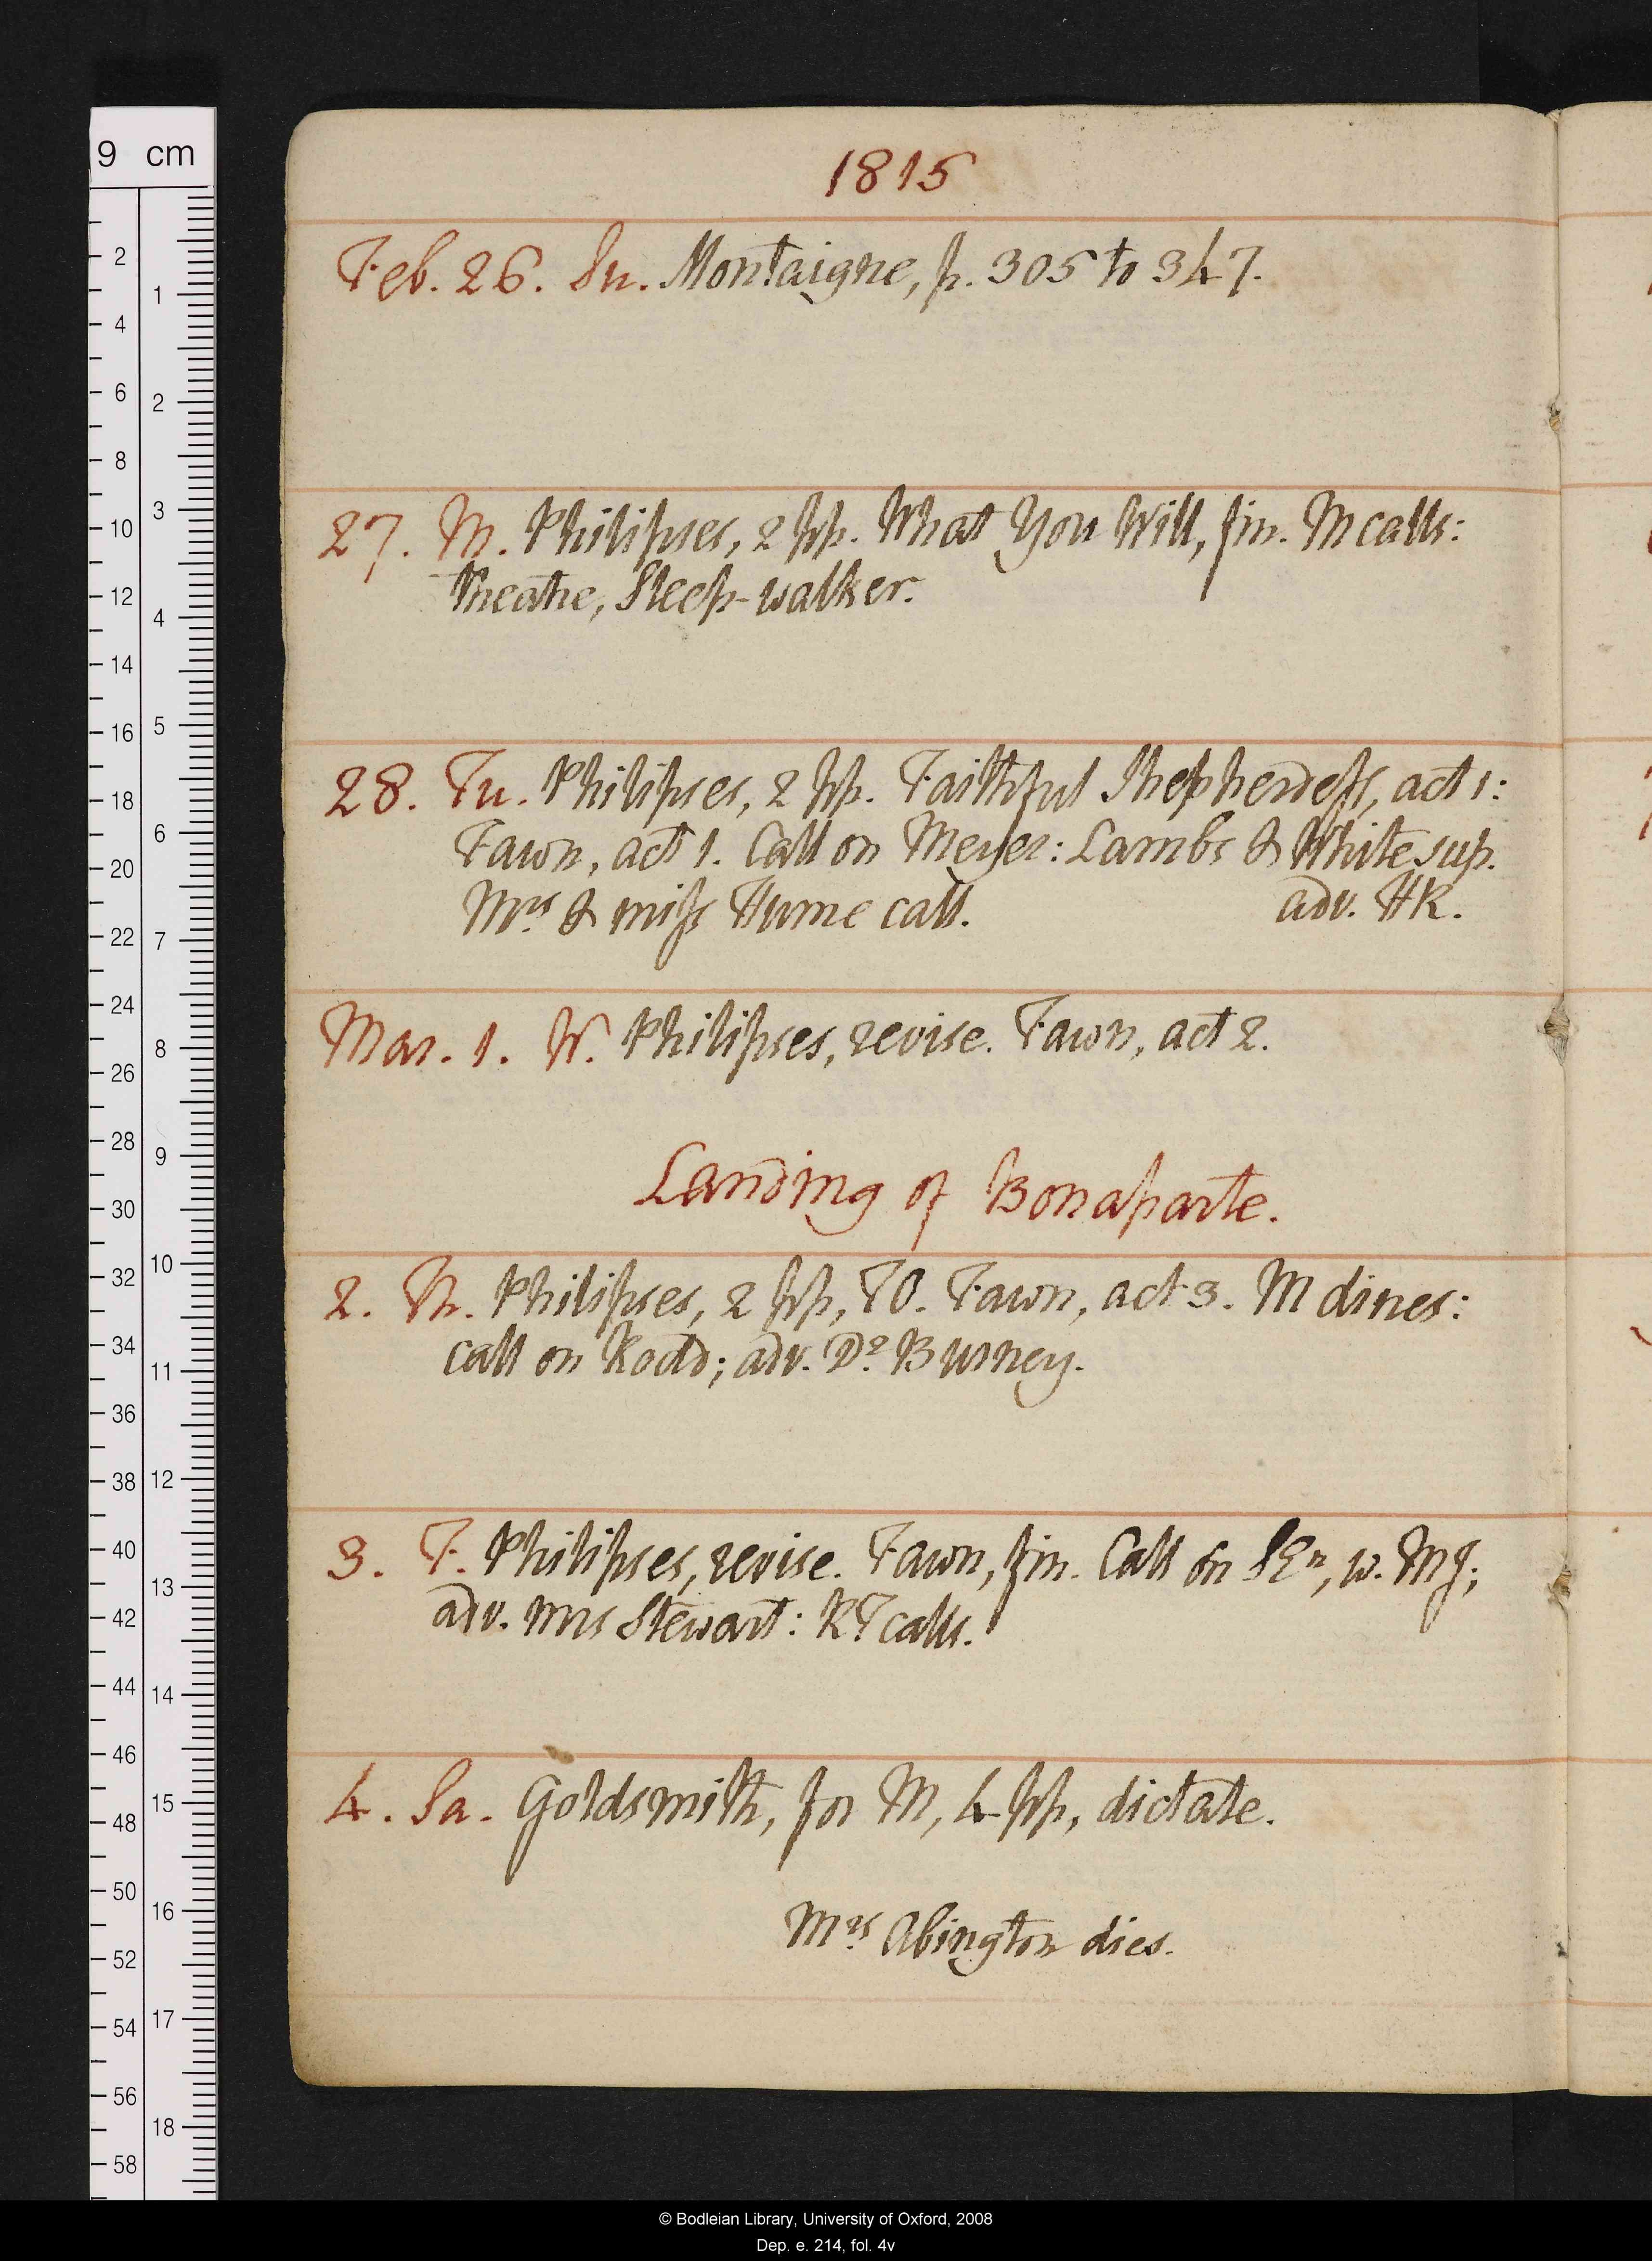 1815
Feb. 26. Su. Montaigne, p. 305 to 347.
27. M. Philipses, 2 pp. What You Will, fin. M calls:
theatre, Sleep-walker.
28. Tu. Philipses, 2 pp. Faithful Shepherdess, act 1:
Fawn, act 1. Call on Meyer: Lambs & White sup.
Mrs & miss Hume call. adv. HR.
Mar. 1. W. Philipses, revise. Fawn, act 2.
Landing of Bonaparte.
2. Th. Philipses, 2 pp, TO. Fawn, act 3. M dines:
call on Rodd; adv. Dr Burney.
3. F. Philipses, revise. Fawn, fin. Call on SEn, w. MJ;
adv. mrs Stewart: RT calls.
4. Sa. Goldsmith, for M, 4 pp, dictate.
Mrs Abington dies.
9 cm
2 4 6 8 10 12 14 16 18 20 22 24 26 28 30 32 34 36 38 40 42 44 46 48 50 52 54 56 58
1 2 3 4 5 6 7 8 9 10 11 12 13 14 15 16 17 18
© Bodleian Library, University of Oxford, 2008
Dep. e. 214, fol. 4v